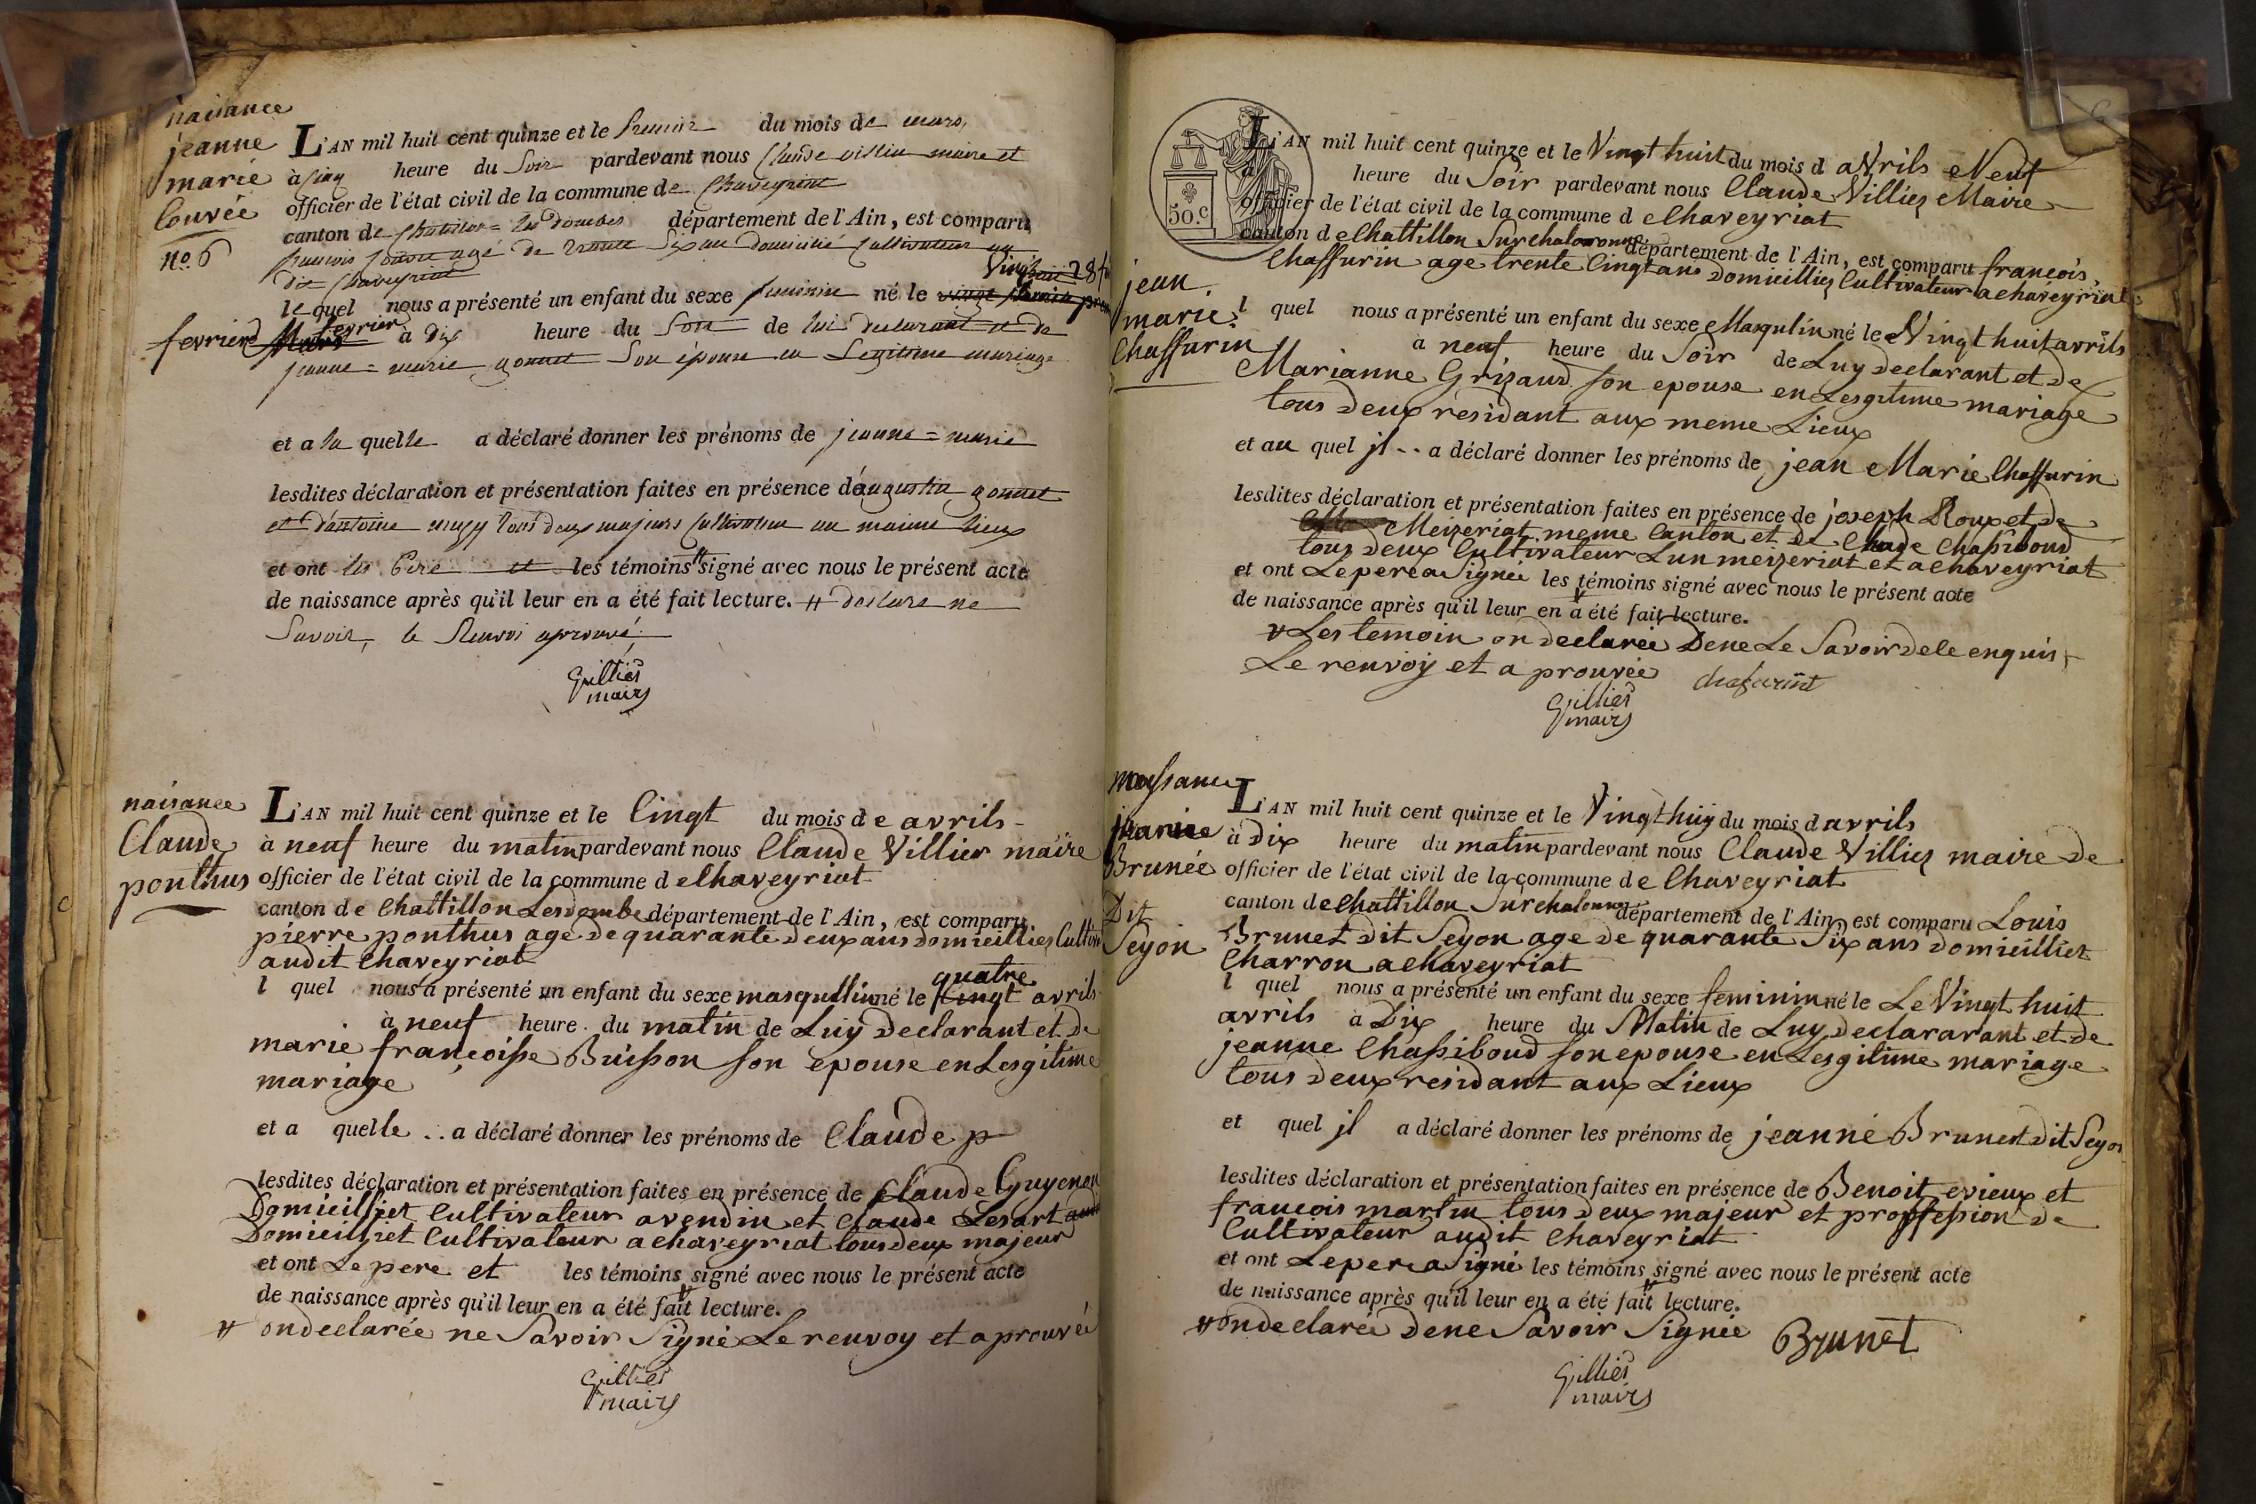 naisance
jeanne
marie
Louvée
no. 6
L'AN mil huit cent quinze et le premier du mois de mars,
à cinq heure du Soir pardevant nous Claude villier maire et
officier de l'état civil de la commune de Chaveyriat
canton de Chatillon = les dombes département de l'Ain, est comparu
françois Louvée agé de trente Six ans domicilié Cultivateur au
dit Chaveyriat
vingt huit 28
le quel nous a présenté un enfant du sexe feminin né le
fevrier fevrier à dix heure du Soir de lui declarant et de
jeanne = marie gonnet Son épouse en Legitime mariage
et a la quelle a déclaré donner les prénoms de jeanne = marie
lesdites déclaration et présentation faites en présence d'augustin gonnet
et d'antoine tous deux majeurs Cultivateur au maime lieux
et ont le Pere et les témoins # signé avec nous le présent acte
de naissance après qu'il leur en a été fait lecture. # declare ne
Savoir, le Renvoi aprouvé
Villier
maire
naisance
Claude
ponthus
L'AN mil huit cent quinze et le Cingt du mois de avrils -
à neuf heure du matin pardevant nous Claude Villier maire
officier de l'état civil de la commune d eChaveyriat
canton de Chattillon Lesdombe département de l'Ain, est comparu
pierre ponthus age de quarante deux ans domicilliez Cultiv
audit Chaveyriat
quatre
l quel nous a présenté un enfant du sexe masqullin né le Cingt avrils
à neuf heure du matin de Luy Declarant et de
marie françoisse Buisson son epouse en Lesgitime
mariage
et a quelle .. a déclaré donner les prénoms de Claude p
lesdites déclaration et présentation faites en présence de Claude Guyenon
Domicilliet Cultivateur a vendin et Claude Lesart
Domicilliet Cultivateur a chaveyriat tous deux majeur
et ont Le pere et les témoins # signé avec nous le présent acte
de naissance après qu'il leur en a été fait lecture.
# ondeclarée ne Savoir Signé Le renvoy et aprouvée
Villier
maire
50.c
jean
marie
Chaffurin
L'AN mil huit cent quinze et le Vingt huit du mois d aVrils Neuf
à heure du Soir pardevant nous Claude Villiez Maire
officier de l'état civil de la commune d eChaveyriat
canton d eChattillon Surchalaronne département de l'Ain, est comparu françois
Chaffurin age trente Cingt ans Domicilliez Cultivateur a chaveyriat
l quel nous a présenté un enfant du sexe Masqulin né le Vingt huit avrils
à neuf heure du Soir de Luy declarant et de
Marianne Grizaud son epouse en Lesgitime mariage
tous deux residant aux meme Lieux
et au quel jl .. a déclaré donner les prénoms de jean Marie Chaffurin
lesdites déclaration et présentation faites en présence de joseph Roux et de
Meizeriat meme Canton et de Claude Chassiboud
tous deux Cultivateur Lun meizeriat et a chaveyriat
et ont Le pere a Signée les témoins signé avec nous le présent acte
de naissance après qu'il leur en a été fait lecture.
# Les temoin on declarée De ne Le Savoir de le enquis
Le renvoy et a prouvée chafurint
Villier
maire
nayssance
jeanne
Brunée
Dit
Seyon
L'AN mil huit cent quinze et le Vingt huij du mois d avrils
à Dix heure du matin pardevant nous Claude Villiez maire de
officier de l'état civil de la commune d e Chaveyriat
canton de Chattillon Surchalonne département de l'Ain, est comparu Louis
Brunet dit Seyon age de quarante Six ans domicilliet
Charron a chaveyriat
l quel nous a présenté un enfant du sexe feminin né le Le Vingt huit
avrils à Dix heure du Matin de Luy declararant et de
jeanne Chassiboud son epouse en Lesgitime mariage
tous deux residant aux Lieux
et quel jl a déclaré donner les prénoms de jeanne Brunet dit Seyon
lesdites déclaration et présentation faites en présence de Benoit evieux et
françois martin tous deux majeur et proffession de
Cultivateur audit Chaveyriat
et ont Le pere a Signé les témoins # signé avec nous le présent acte
de naissance après qu'il leur en a été fait lecture.
# ondeclarée de ne Savoir Signée Brunet
Villier
maire